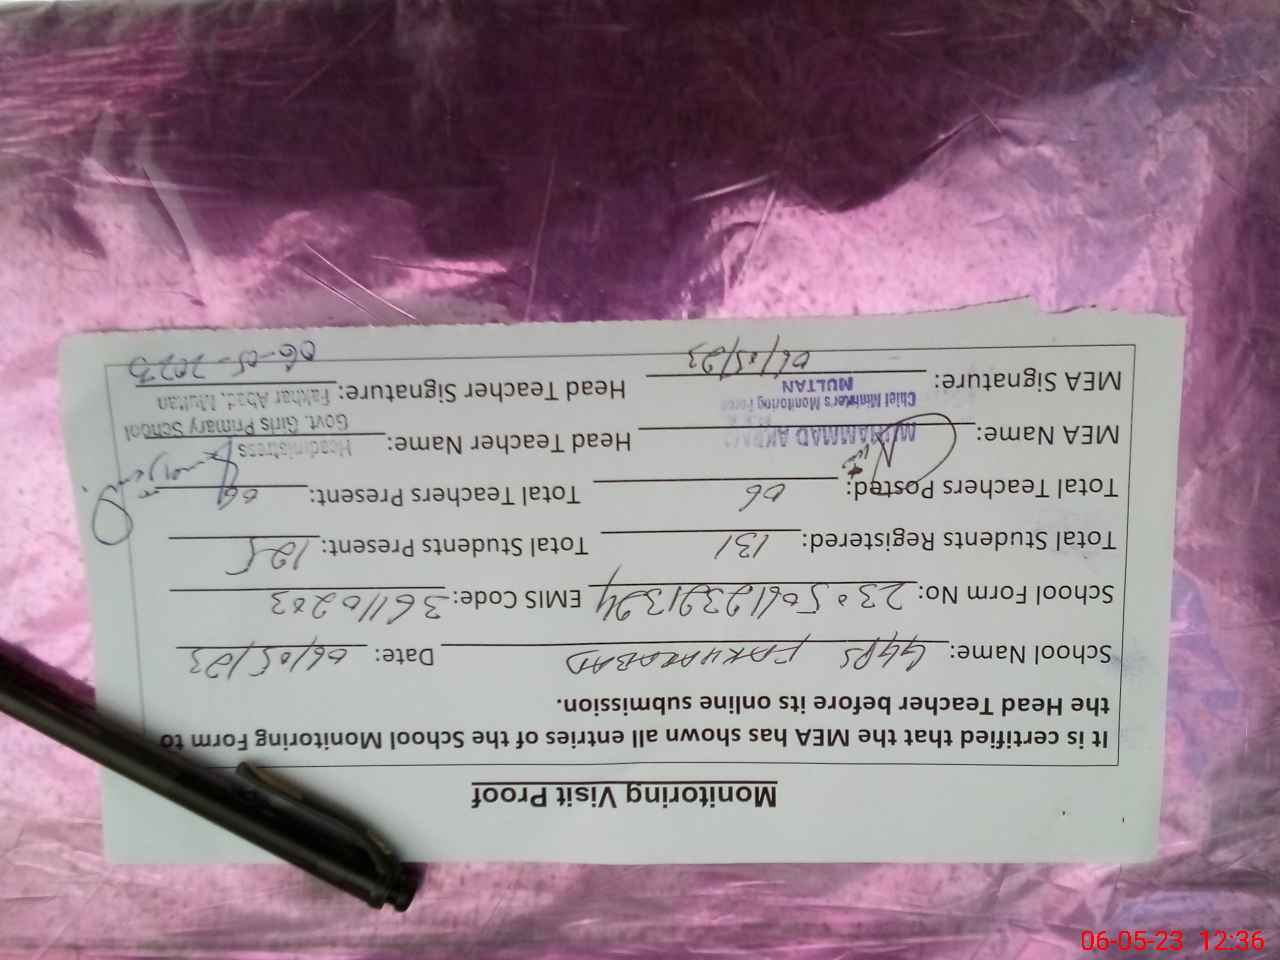 Monitoring Visit Proof
It is certified that the MEA has shown all entries of the School Monitoring Form to
the Head Teacher before its online submission.
School Name: GGPS FAKHARABAD Date: 06/05/23
School Form No: 23050612321324 EMIS Code: 36110203
Total Students Registered: 131 Total Students Present: 125
Total Teachers Posted: 06 Total Teachers Present: 06
MEA Name: MUHAMMAD AKBAR Head Teacher Name: Headmistress
Chief Minister's Monitoring Force Govt. Girls Primary School
MULTAN Fakhar Abad, Multan
MEA Signature: 06/05/23 Head Teacher Signature: 06-05-2023
06-05-23 12:36